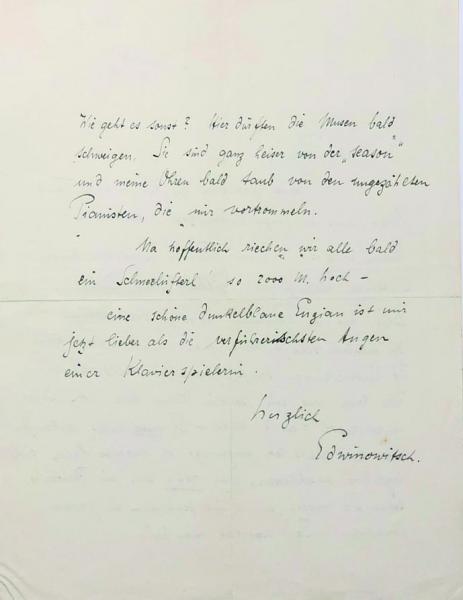 Wie geht es sonst? Hier dürften die Musen bald
schweigen. Sie sind ganz heiser von der „season“
und meine Ohren bald taub von den ungezählten
Pianisten, die mir vortrommeln.
Na hoffentlich riechen wir alle bald
ein Schneelüfterl so 2000 M. hoch –
eine schöne dunkelblaue Enzian ist mir
jetzt lieber als die verführerischsten Augen
einer Klavierspielerin.
herzlich
Edwinowitsch.